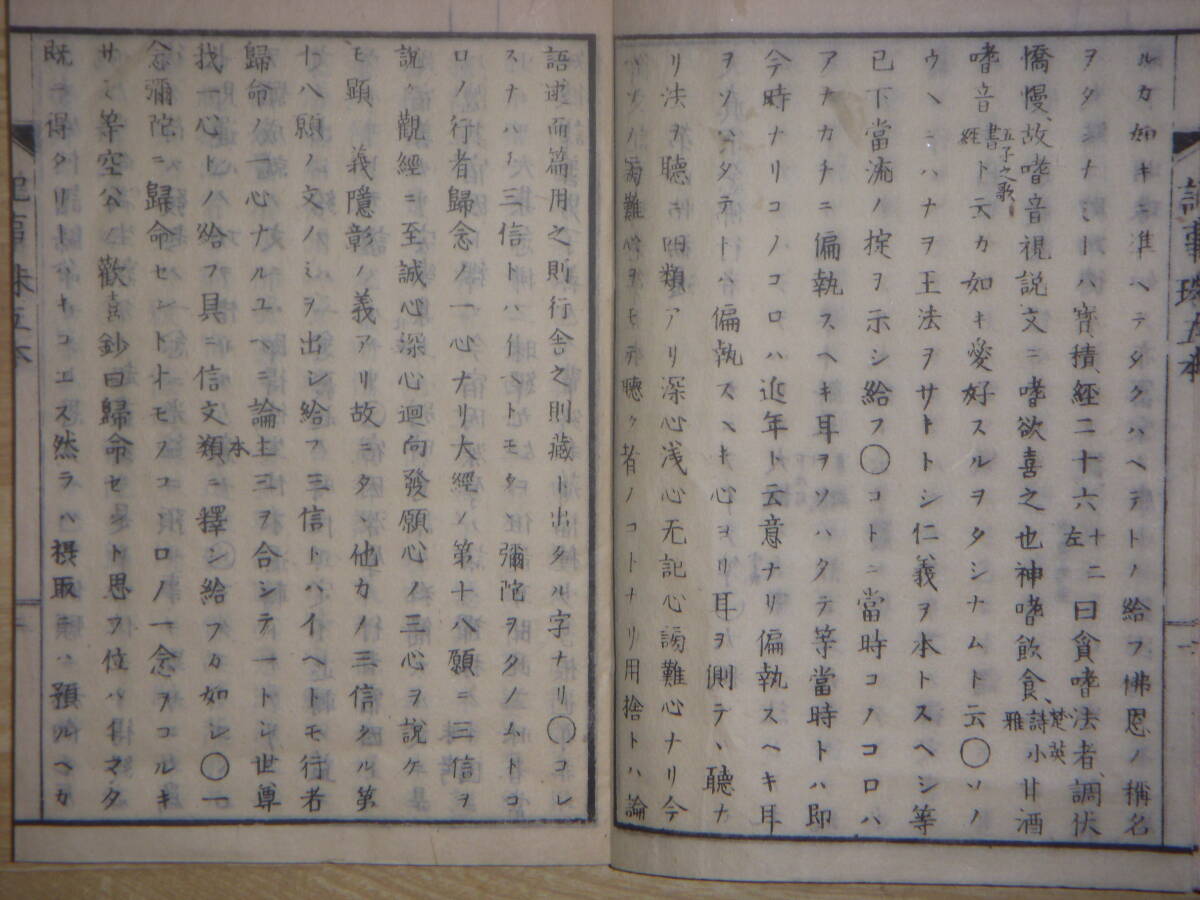 ルカ如キニ準ヘテタクハヘテトノ給フ佛恩ノ稱名
ヲタシナミトハ寶積經二十六十二左曰貪嗜法者調伏
憍慢故嗜音視説文ニ嗜欲喜之也神嗜飲食詩小雅楚英甘酒
嗜音書經五子之歌ト云カ如キ愛好スルヲタシナムト云〇ソノ
ウヘニハナヲ王法ヲサトトシ仁義ヲ本トスヘシ等
已下當流ノ掟ヲ示シ給フ〇コトニ當時コノコロハ
アナカチニ偏執スヘキ耳ヲソハタテ等當時トハ即
今時ナリコノコロハ近年ト云意ナリ偏執スヘキ耳
ヲソハタテトハ偏執スヘキ心ヨリ耳ヲ側テヽ聽ナ
リ法ヲ聽ニ四類アリ深心浅心无記心謗難心ナリ今
ハソノ謗難心ヲモテ聽ク者ノコトナリ用捨トハ論
語述而篇用之則行舎之則藏ト出タル字ナリ〇コレ
スナハチ三信トハ イトモタヽ彌陀ヲタノムトコ
ロノ行者歸念ノ一心ナリ大經ノ第十八願ニ三信ヲ
説キ觀經ニ至誠心深心迴向發願心ノ三心ヲ説ケ
モ顯 義隱彰ノ義アリ故ニタヽ他力ノ三信タル第
十八願ノ文ノミヲ出シ給フ三信トハイヘトモ行者
歸命ノ一心ナルユヘニ論主三ヲ合シテ一トシ世尊
我一心トノ給フ具ニ信文類本ニ釋シ給フカ如シ〇一
念彌陀ニ歸命セントオモフコヽロノ一念ヲコルキ
サミ等空公ノ歡喜鈔曰歸命セント思フ位ハイマタ
既ニ得タリトハキコエス然ラハ摂取ニハ預ルヘカ